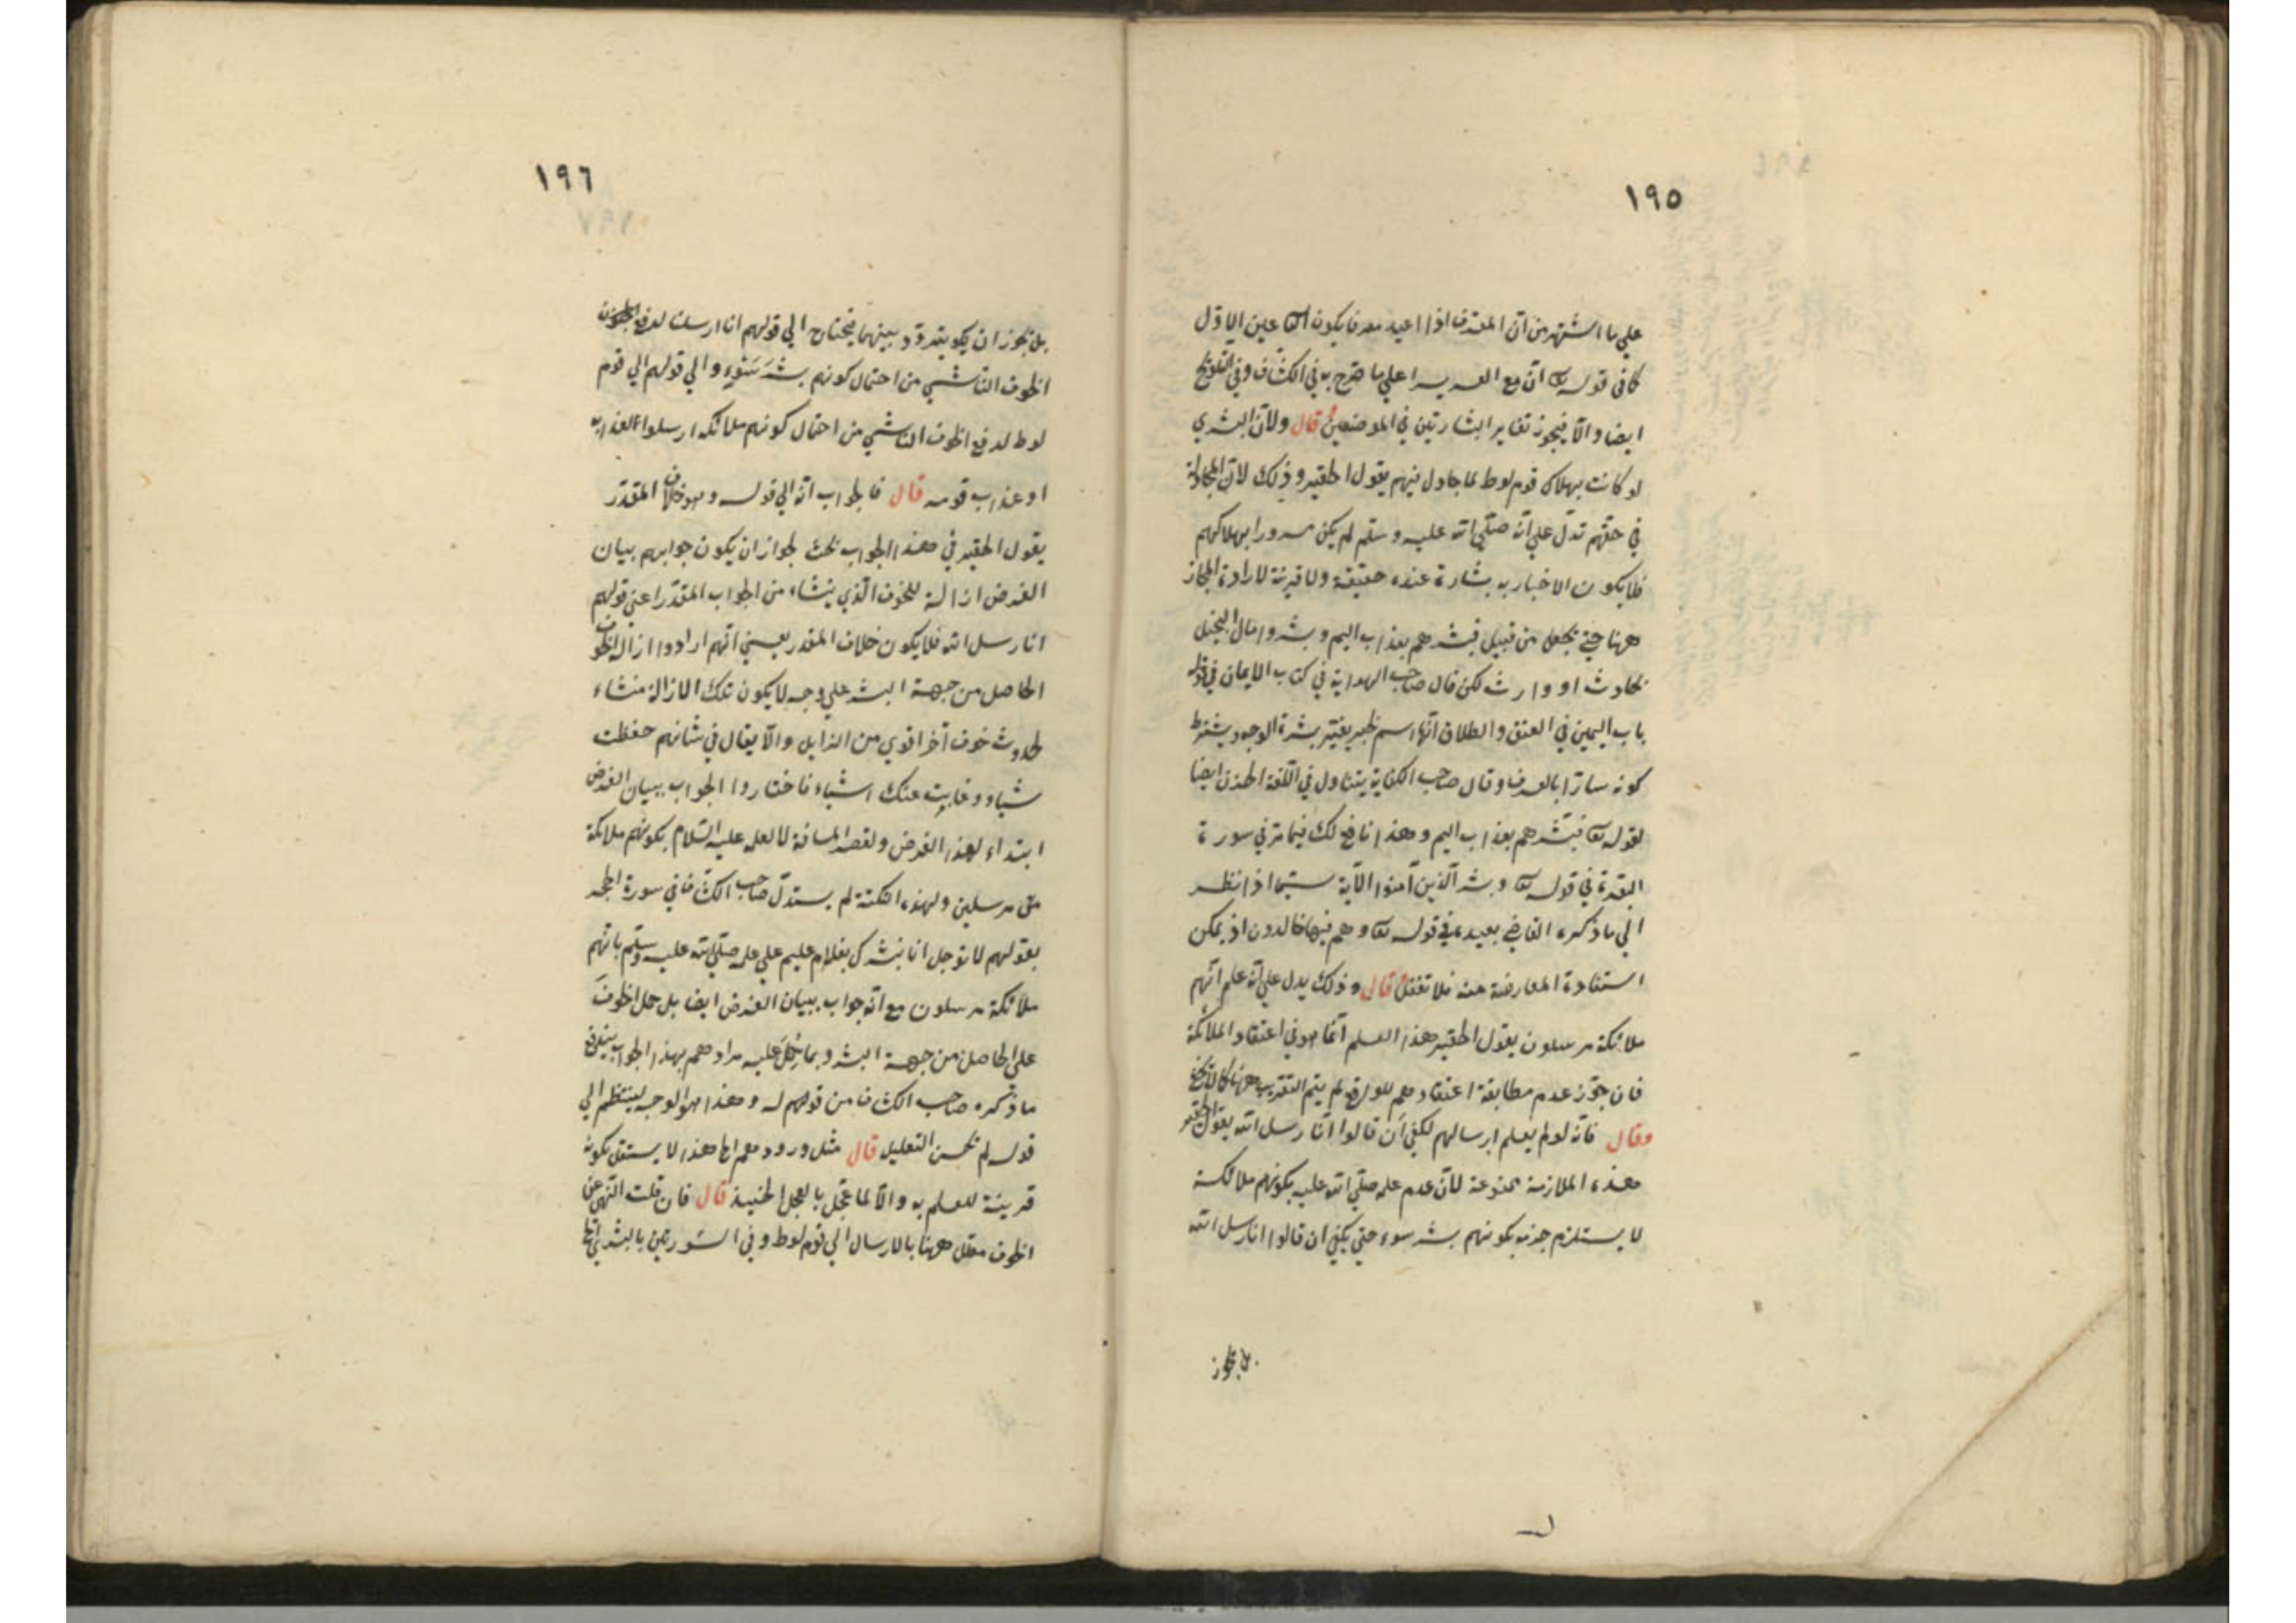 ١٩٥
علي ما اشتهر من ان المعرف اذا اعيد معرفا يكون الثاني عين الاول
كما في قوله تع ان مع العسر يسرا علي ما صرح به في الكشاف وفي التلويح
ايضا والا فيجوز تغاير البشارتين في الموضعين قال ولان البشري
لو كانت بهلاك قوم لوط لما جادل فيهم يقول الحقير وذلك لان المجادلة
في حقهم تدل علي انه صلي الله عليه وسلم لم يكن مسرورا بهلاكهم
فلا يكون الاخبار به بشارة عنده حقيقة ولا قرينة لارادة المجاز
ههنا حتي يجعل من قبيل فبشرهم بعذاب اليم وبشر مال البخيل
بحادث او وارث لكن قال صاحب الهداية في كتاب الايمان في
باب اليمين في العتق والطلاق انها اسم خبر يغير بشرة الوجه ويشترط
كونه سارا بالعرف وقال صاحب الكفاية يتناول في اللغة الحزن ايضا
لقوله تع فبشرهم بعذاب اليم وهذا نافع لك فيما مر في سورة
البقرة في قوله تع وبشر الذين آمنوا الآية سيما اذا نظر
الي ما ذكره القاضي بعيده في قوله تع وهم فيها خالدون اذ يمكن
استفادة المعارضة منه فلا تغفل قال وذلك يدل علي انه علم انهم
ملائكة مرسلون يقول الحقير هذا العلم انما هو في اعتقاد الملائكة
فان جوز عدم مطابقة اعتقادهم للواقع لم يتم التقريب ههنا كما لا يخفي
وقال فانه لو لم يعلم ارسالهم لكفي ان قالوا انا رسل الله يقول الحقير
هذه الملازمة ممنوعة لان عدم علمه صلي الله عليه بكونهم ملائكة
لا يستلزم جزمه بكونهم بشر سوء حتي يكفي ان قالوا انا رسل الله
بل يجوز
١٩٦
بل يجوز ان يكون يتردد بينهما فيحتاج الي قولهم انا ارسلنا لدفع
الخوف الناشي من احتمال كونهم بشر سوء والي قولهم الي قوم
لوط لدفع الخوف الناشي من احتمال كونهم ملائكة ارسلوا لعذابه
او عذاب قومه قال فالجواب انه الي قوله وهو خلاف المقدر
يقول الحقير في هذا الجواب بحث لجواز ان يكون جوابهم بيان
الغرض ازالة للخوف الذي ينشاء من الجواب المقدر اعني قولهم
انا رسل الله فلا يكون خلاف المقدر يعني انهم ارادوا ازالة الخوف
الحاصل من جهة البشر علي وجه لا يكون تلك الازالة منشاء
لحدوث خوف آخر اقوي من الزايل والا يقال في شانهم حفظت
شياء وغابت عنك اشياء فاختاروا الجواب ببيان الغرض
ابتداء لهذا الغرض ولقصر المسافة لا لعلمه عليه السلام بكونهم ملائكة
مرسلين ولهذه النكتة لم يستدل صاحب الكشاف في سورة الحجر
بقولهم لا توجل انا نبشرك بغلام عليم علي علمه صلي الله عليه وسلم بانهم
ملائكة مرسلون مع انه جواب ببيان الغرض ايضا بل حمل الخوف
علي الحاصل من جهة البشر وبما حمل عليه مرادهم بهذا الجواب يندفع
ما ذكره صاحب الكشاف من قولهم له وهذا هو الوجه لينتظم الي
قوله لم يحسن التعليل قال مثل ورود معمر اما هذا لا يستقل بكونه
قرينة للعلم به والا لما عجل بالعجل الحنيذ قال فان قلت النهي عن
الخوف معلل ههنا بالارسال الي قوم لوط وفي السورتين بالبشري